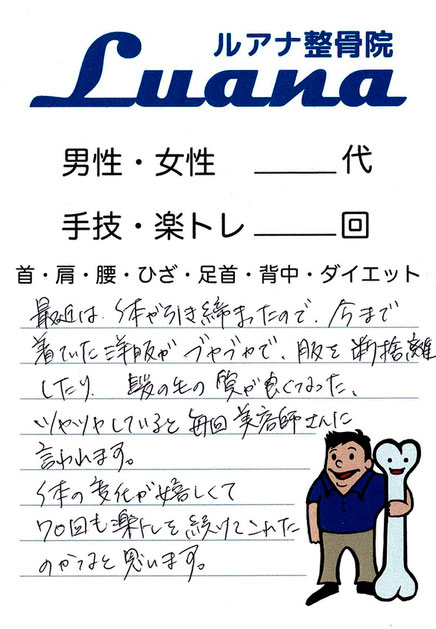 ルアナ整骨院
Luana
男性・女性 ＿＿＿代
手技・楽トレ＿＿＿回
首・肩・腰・ひざ・足首・背中・ダイエット
最近は、体が引き締まったので、今まで
着ていた洋服がブヤブヤで、服を断捨離
したり、髪の毛の質が良くなった、
ツヤツヤしていると毎回美容師さんに
言われます。
体の変化が嬉しくて
70回も楽トレを続けてこれた
のかなと思います。